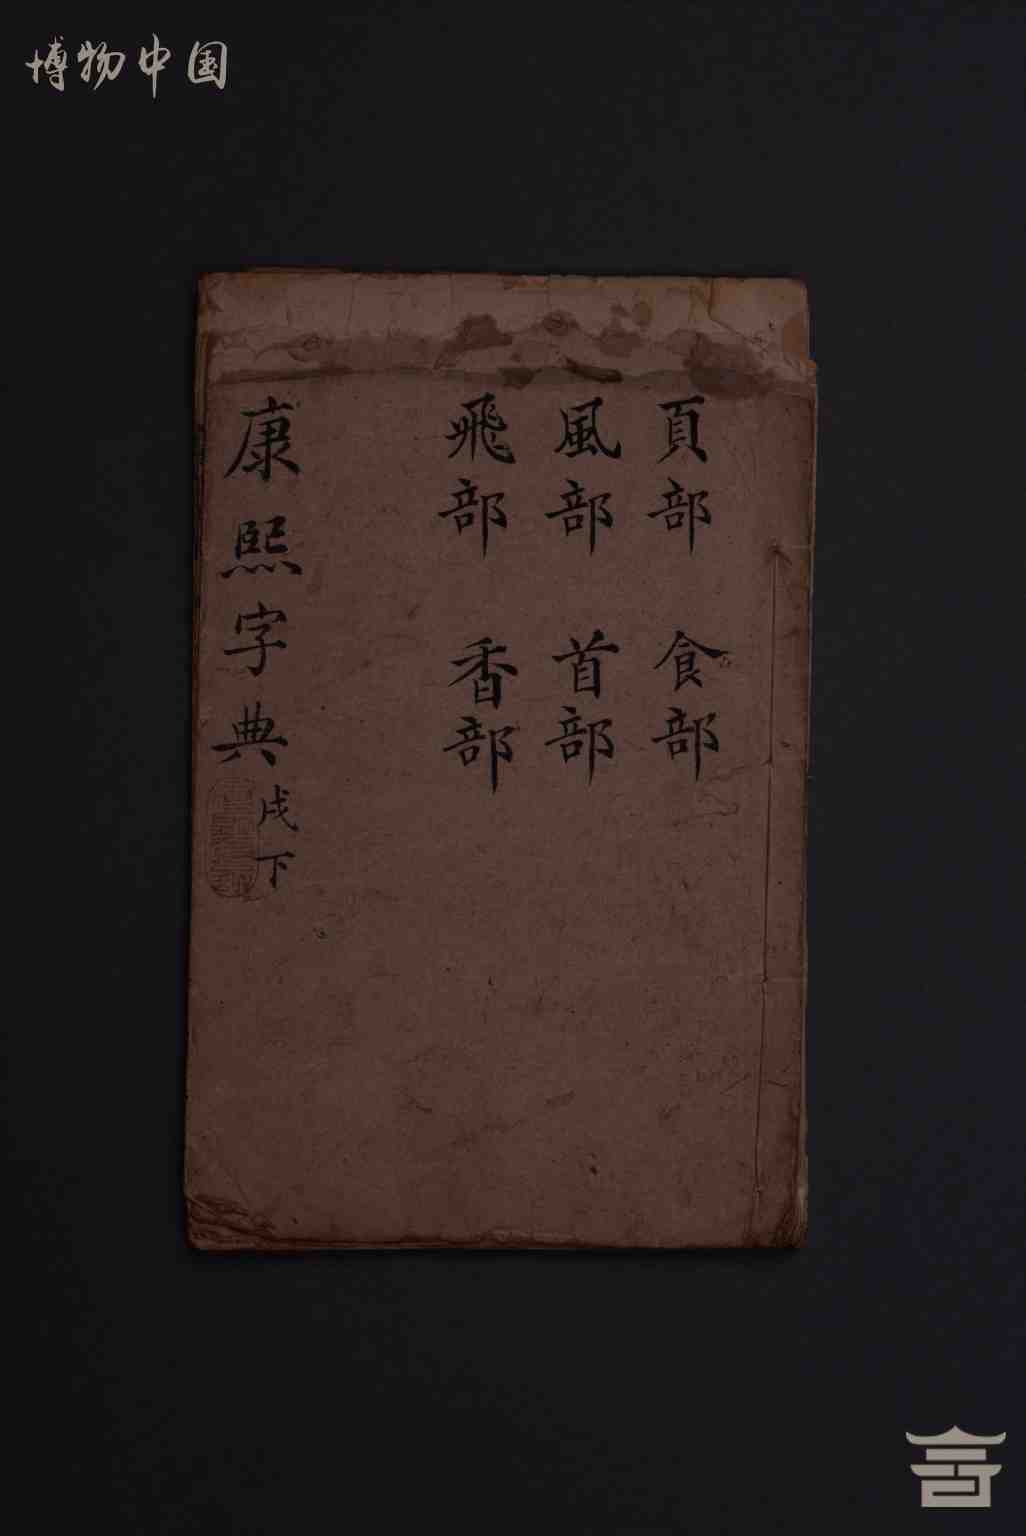 博物中国
頁部 食部
風部 首部
飛部 香部
康熙字典
戌下